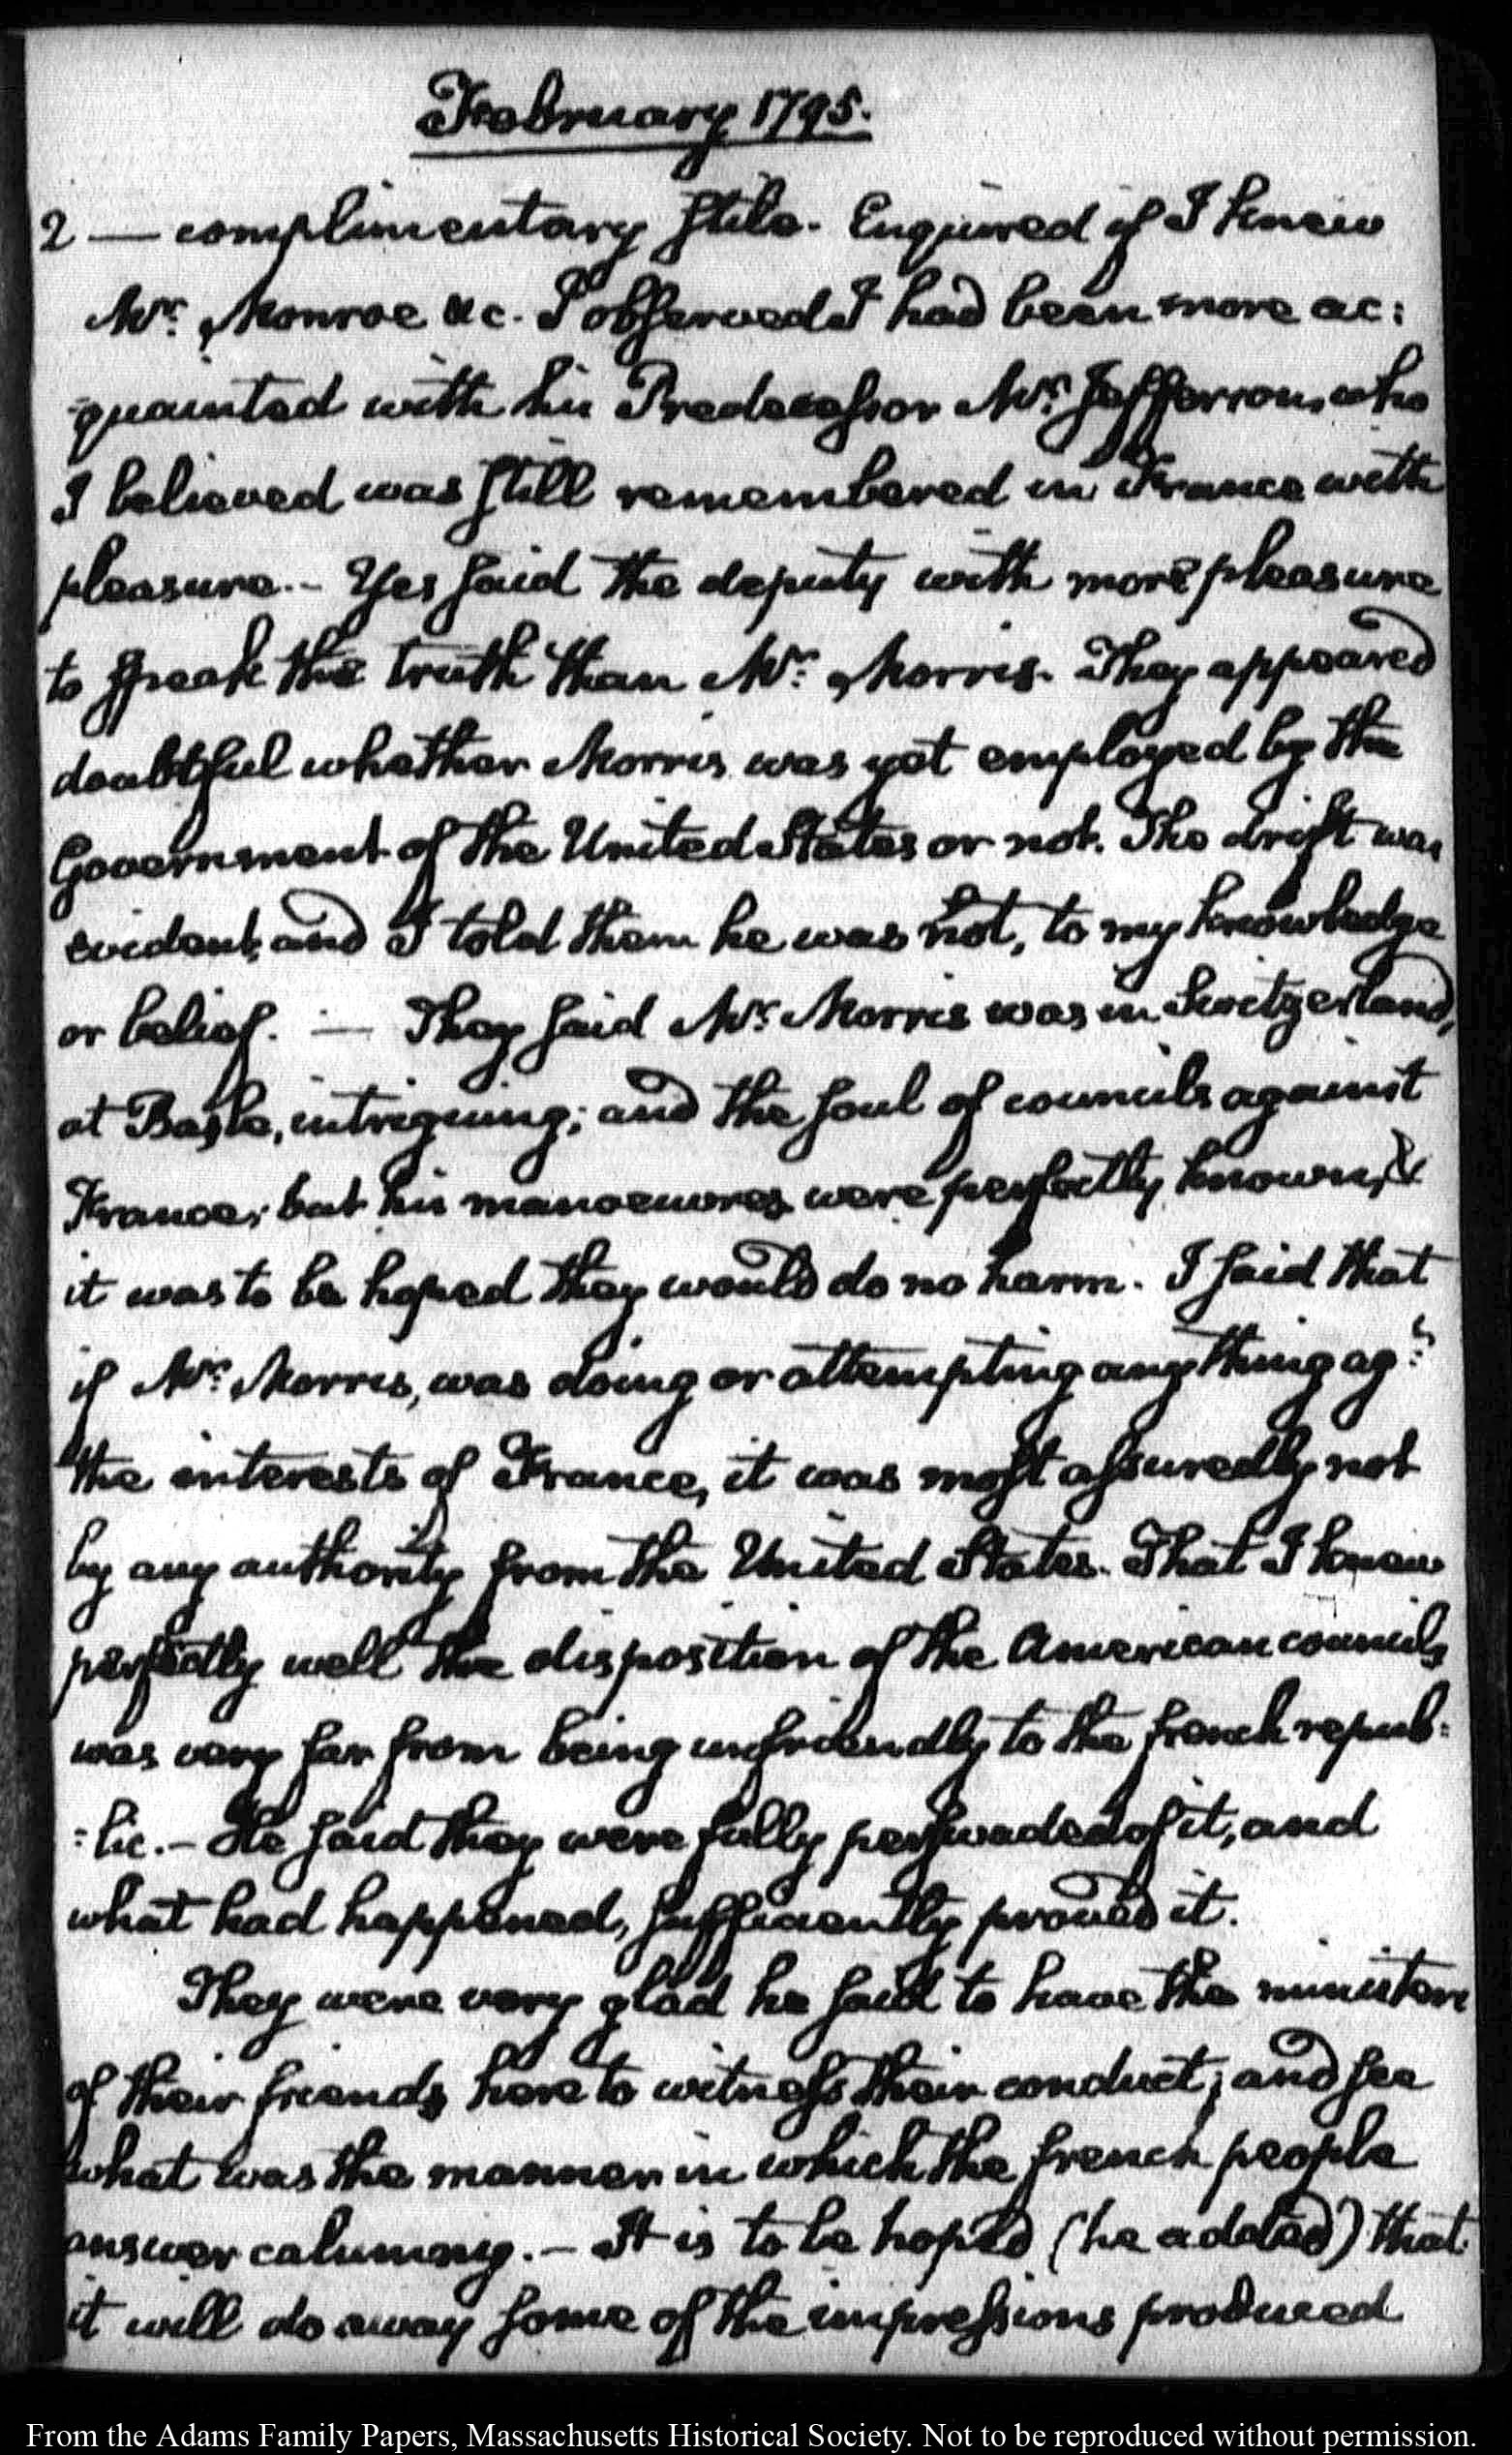 February 1795.
2 — complimentary stile. Enquired if I knew
Mr. Monroe &c. I observed I had been more ac:
quainted with his Predecessor Mr. Jefferson, who
I believed was still remembered in France with
pleasure. - Yes said the deputy with more pleasure
to speak the truth than Mr. Morris. They appeared
doubtful whether Morris was yet employed by the
Government of the United States or not. The drift was
evident, and I told them he was not, to my knowledge
or belief. — They said Mr. Morris was in Switzerland,
at Basle, intriguing; and the soul of councils against
France; but his manoeuvres were perfectly known, &
it was to be hoped they would do no harm. I said that
if Mr. Morris, was doing or attempting any thing agt.
the interests of France, it was most assuredly not
by any authority from the United States. That I knew
perfectly well the disposition of the American councils
was very far from being unfriendly to the french repub:
:lic. - He said they were fully perswaded of it, and
what had happened, sufficiently proved it.
They were very glad he said to have the ministers
of their friends here to witness their conduct; and see
what was the manner in which the french people
answer calumny. - It is to be hoped (he added) that
it will do away some of the impressions produced
From the Adams Family Papers, Massachusetts Historical Society. Not to be reproduced without permission.